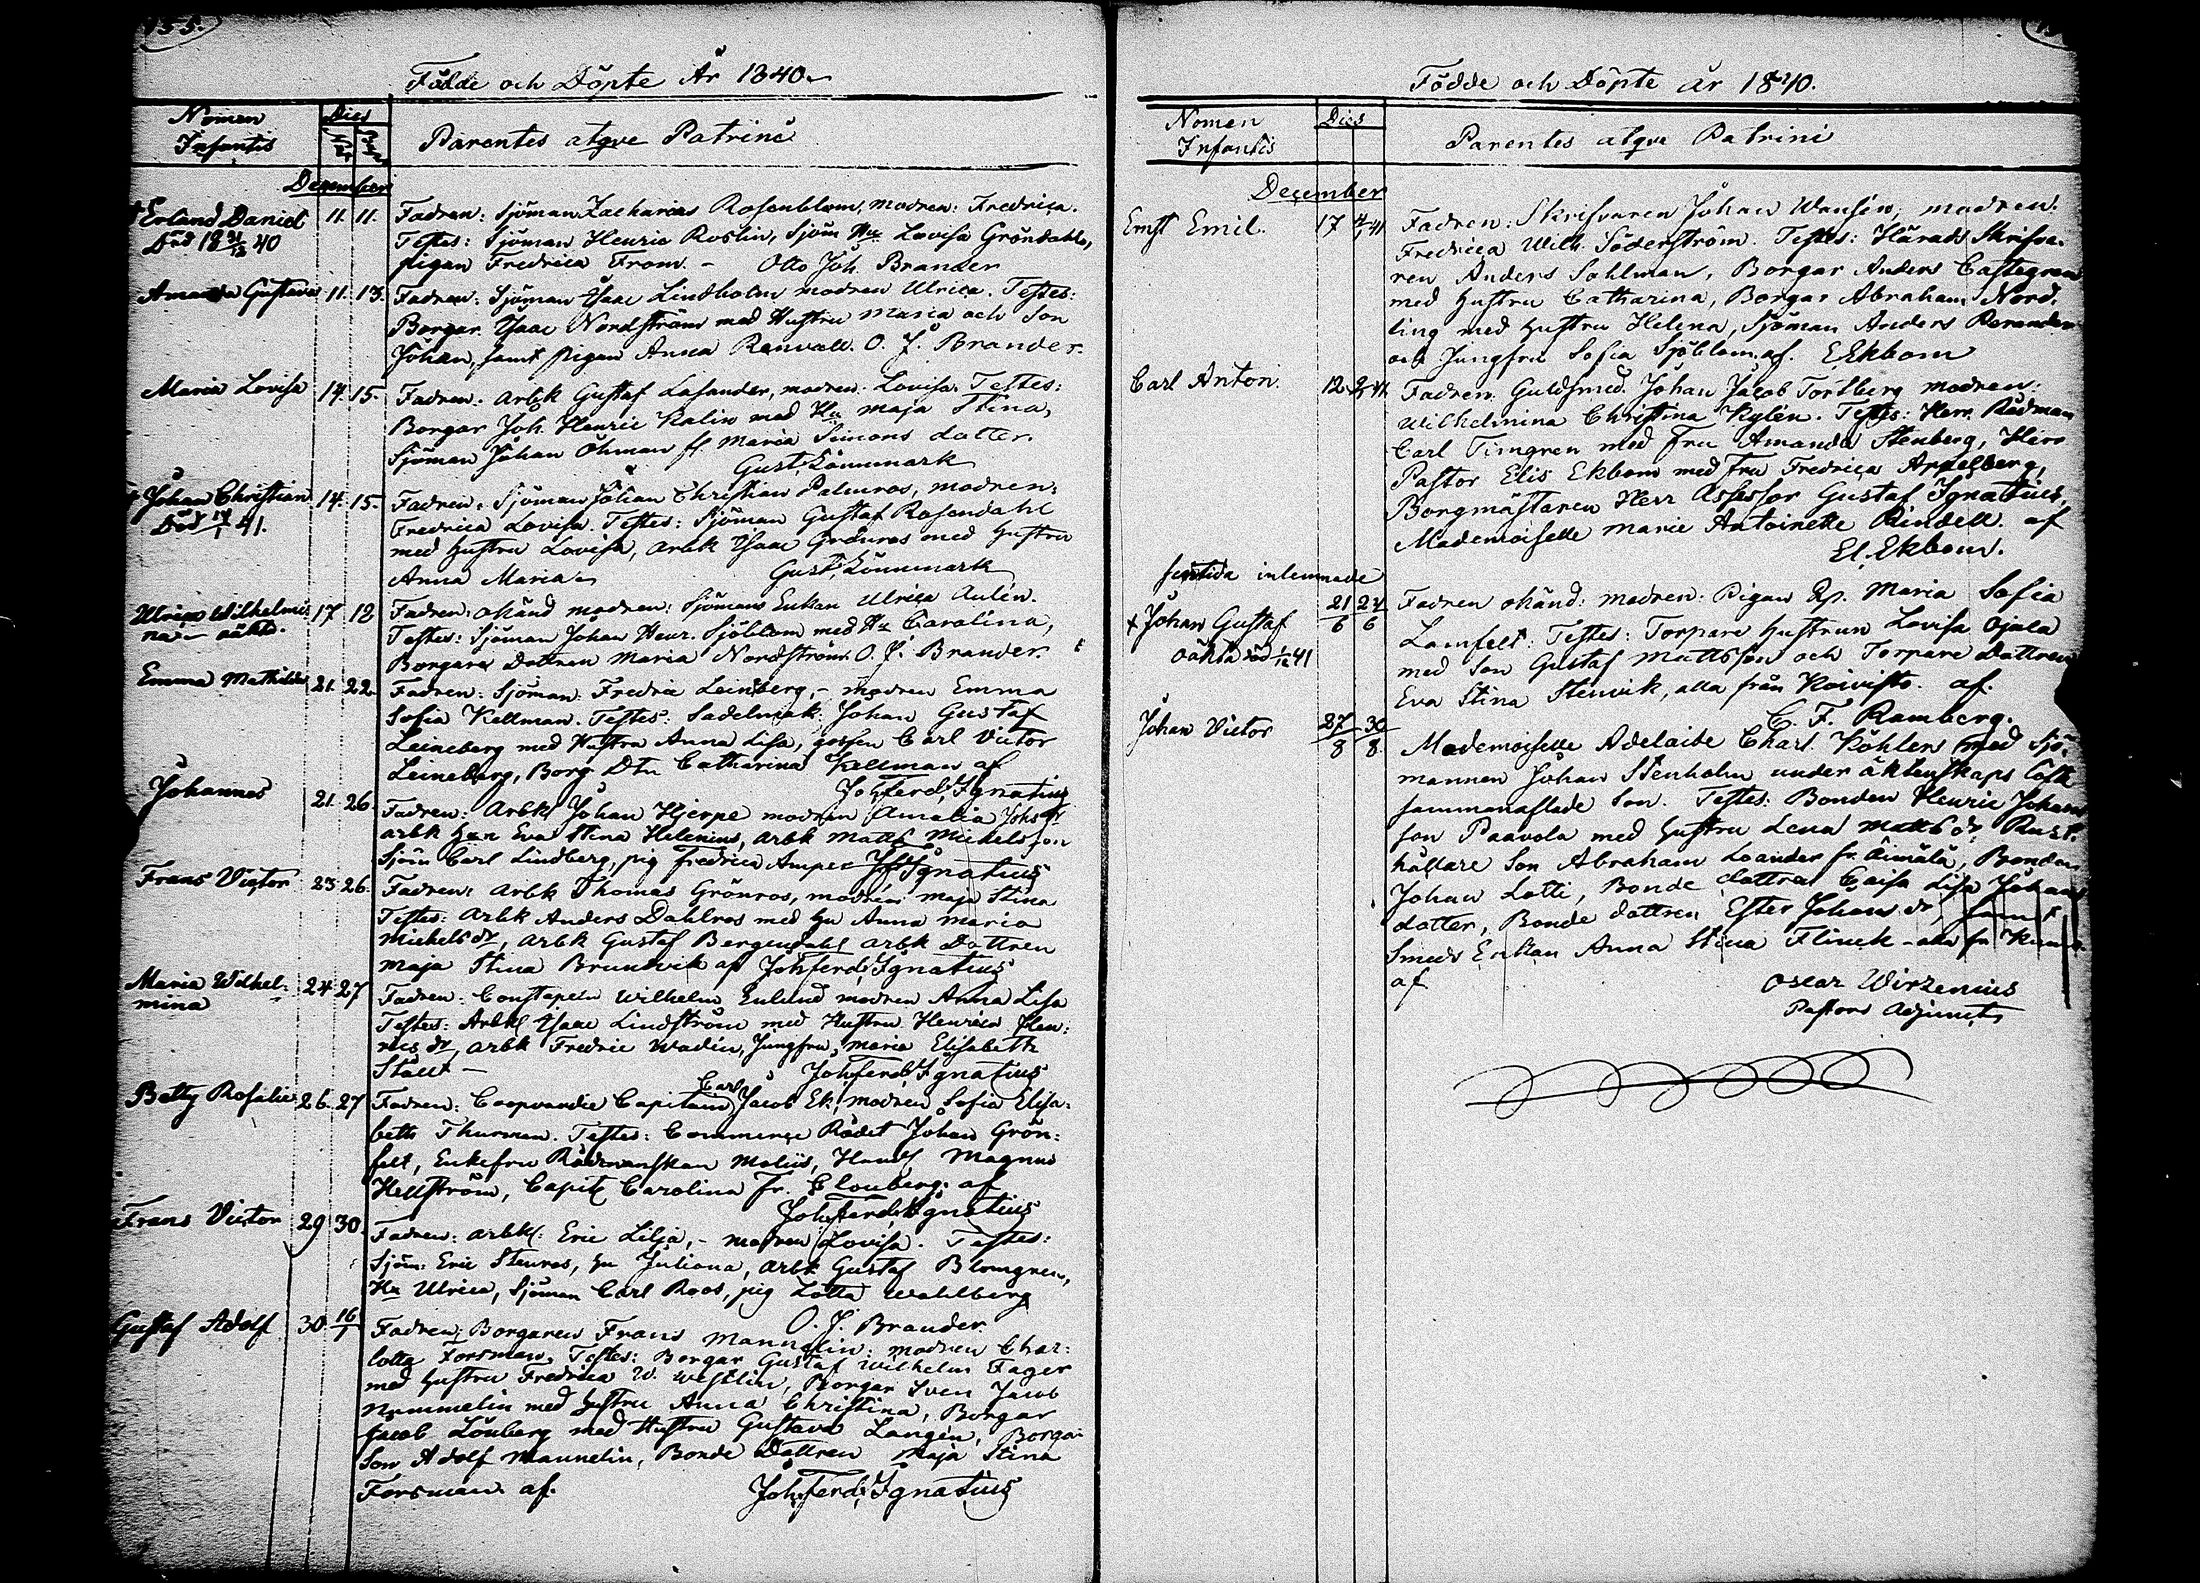 155.
Födde och Döpte År 1840.
Nomen Infantis
Dies
Parentes atqve Patrini
December
Erland Daniel 11. 11. Fadren: Sjöman Zacharias Rosenblom, modren: Fredrica.
Död 18 31/12 40 Testes: Sjöman Henric Roslin, Sjöm Hu Lovisa Gröndahl,
pigan Fredrica From. – Otto Joh. Brander
Amanda Gustava 11. 13. Fadren: Sjöman Isaac Lindholm modren Ulrica. Testes:
Borgar. Isaac Nordström med Hustru Maria och Son
Johan, samt pigan Anna Renvall. O. J. Brander.
Maria Lovisa 14. 15. Fadren: Arbk Gustaf Lasander, modren. Lovisa. Testes:
Borgar Joh. Henric Kalin med Hu Maja Stina,
Sjöman Johan Öhman Maria Simons dotter.
Gust. Lönnmark
Johan Christian 14. 15. Fadren: Sjöman Johan Christian Palmros, modren:
Död 14/1 41. Fredrica Lovisa. Testes: Sjöman Gustaf Rosendahl
med Hustru Lovisa, Arbk Isaac Grönros med Hustru
Anna Maria Gust. Lönnmark
Ulrica Wilhelmi: 17 12 Fadren: okänd modren: Sjömans Enkan Ulrica Aulin.
na – oäkta. Testes: Sjöman Johan Henr. Sjöblom med Hu Carolina,
Borgare Dottren Maria Nordström. O. J. Brander.
Emma Mathilda 21. 22. Fadren: Sjöman: Fredric Leinberg, – modren Emma
Sofia Kellman. Testes: Sadelmak: Johan Gustaf
Leineberg med Hustru Anna Lisa, gossen Carl Victor
Leineberg, Borg Dtn Catharina Kellman af
Joh. Ferd. Ignatius
Johannes 21. 26. Fadren: Arbk Johan Hjerpe modren Amalia Johs dr
arbk Hun Eva Stina Helenius, arbk Matts Mickelsson
Sjöm Carl Lindberg, pig Fredrica Amper JFIgnatius
Frans Victor 23. 26. Fadren: Arbk Thomas Grönros, modren Maja Stina
Testes: Arbk Anders Dahlros med Hu Anna Maria
Michels dr, Arbk Gustaf Bergendahl arbk Dottren
Maja Stina Brunnvik af Joh. Ferd. Ignatius
Maria Wilhel: 24. 27 Fadren: Constapeln Wilhelm Enlund modren Anna Lisa
mina Testes: Arbk Isaac Lindström med Hustru Henrica Hen:
rics dr, arbk Fredric Wadén, Jungfru Maria Elisabeth
Ståhlt – Joh. Ferd. Ignatius
Betty Rosalie 26. 27 Fadren: Coopvardie Capitain Carl Jacob Ek, modren Sofia Elisa:
beth Thurman. Testes: Commerce Rådet Johan Grön:
felt, Enkefru Rådmanskan Moliis, Handl Magnus
Hellström, Capit Carolina Fr. Clouberg. af
Joh. Ferd. Ignatius
Frans Victor 29 30. Fadren: arbk: Eric Lilja, – modren Lovisa. Testes:
Sjöm: Eric Stenros, Hu Juliana, arbk Gustaf Blomgren,
Hu Ulrica, Sjöman Carl Roos, pig Lotta Wahlberg
O. J. Brander.
Gustaf Adolf 30. 16/1 Fadren: Borgaren Frans Mannelin: modren Char:
lotta Forsman. Testes: Borgar Gustaf Wilhelm Fager
med Hustru Fredrica W. Westlin, Borgar Sven Jacob
Nummelin med Hustru Anna Christina, Borgar
Jacob Lönberg med Hustru Gustava Langén, Borgar
Son Adolf Mannelin, Bonde Dottren Maja Stina
Forsman af. Joh. Ferd. Ignatius
Födde och Döpte år 1840.
Nomen Infantis
Dies
Parentes atqve Patrini
December
Ernst Emil. 17 4/1 41 Fadren: Skrifvaren Johan Wansén, modren.
Fredrica Wilh. Söderström. Testes: Härads Skrifva:
ren Anders Sahlman, Borgar Anders Castegren
med Hustru Catharina, Borgar Abraham Nord:
ling med Hustru Helena, Sjöman Anders Rerander
och Jungfru Sofia Sjöblom. af. E Ekbom
Carl Anton 12. 2/1 41 Fadren: Guldsmed. Johan Jacob Torsberg modren:
Wilhelmina Christina Kylén. Testes: Herr Rådman
Carl Timgren med Fru Amanda Stenberg, Herr
Pastor Elis Ekbom med Fru Fredrica Appelberg,
Borgmästaren Herr Assessor Gustaf Ignatius,
Mademoiselle Marie Antoinette Rindell. af
El. Ekbom.
inlemnade
Johan Gustaf 21/6 24/6 Fadren okänd: modren: Pigan Maria Sofia
oäkta död 1/12 41 Lamfelt. Testes: Torpare Hustrun Lovisa Ojala
med Son Gustaf Mattsson och Torpare Dottren
Eva Stina Stenvik, alla från Koivisto. af.
C. F. Ramberg.
Johan Victor 27/8 30/8 Mademoiselle Adelaide Charl. Köhlers med Sjö:
mannen Johan Stenholm under äktenskaps löfte
sammanaflade Son. Testes: Bonden Henric Johans
son Paavola med Hustru Lena Matts dr Rust:
hållare Son Abraham Loander fr. Äimälä, Bonden
Johan Lotti, Bonde dottren Caisa Lisa Johans
dotter, Bonde dottren Ester Johans dr samt
Smeds Enkan Anna Stina Flinck – alla fr
af Oscar Wirzenius
Pastors Adjunct